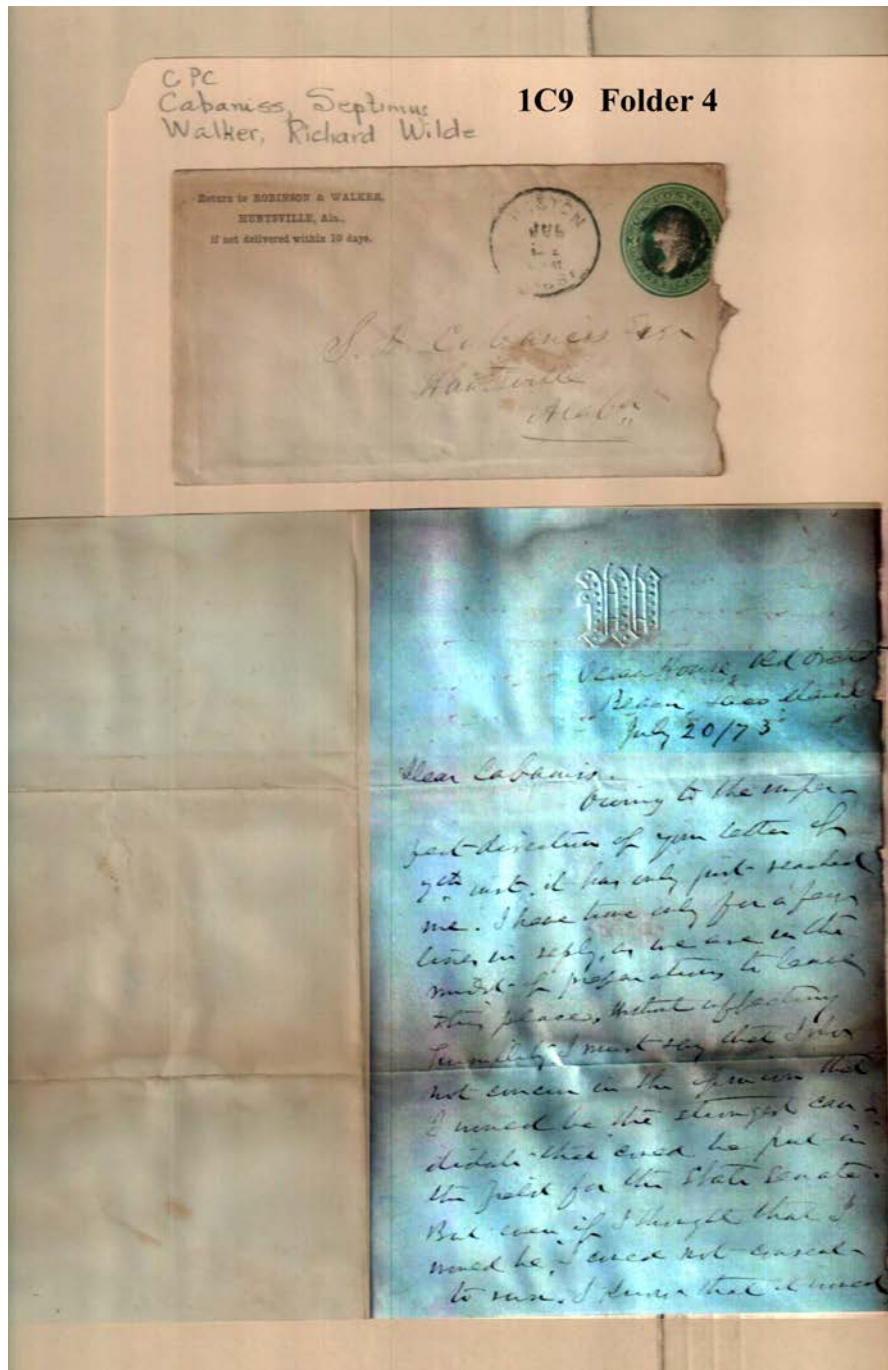 CPC
Cabaniss, Septimus
Walker, Richard Wilde
1C9 Folder 4
Return to ROBINSON & WALKER,
HUNTSVILLE, Ala.,
if not delivered within 10 days.
S. D. Cabaniss Esqr
Huntsville
Alaba
W
Ocean House, Old Orchard
Beach, Saco Maine
July 20/73
Dear Cabaniss.
Owing to the imper-
fect direction of your letter of
7th inst. it has only just reached
me. I have time only for a few
lines in reply, as we are in the
midst of preparations to leave
this place. Without affecting
humility I must say that I do
not concur in the opinion that
I would be the strongest can-
didate that could be put in
the field for the State Senate.
But even if I thought that I
would be, I could not consent
to run. I know that it would